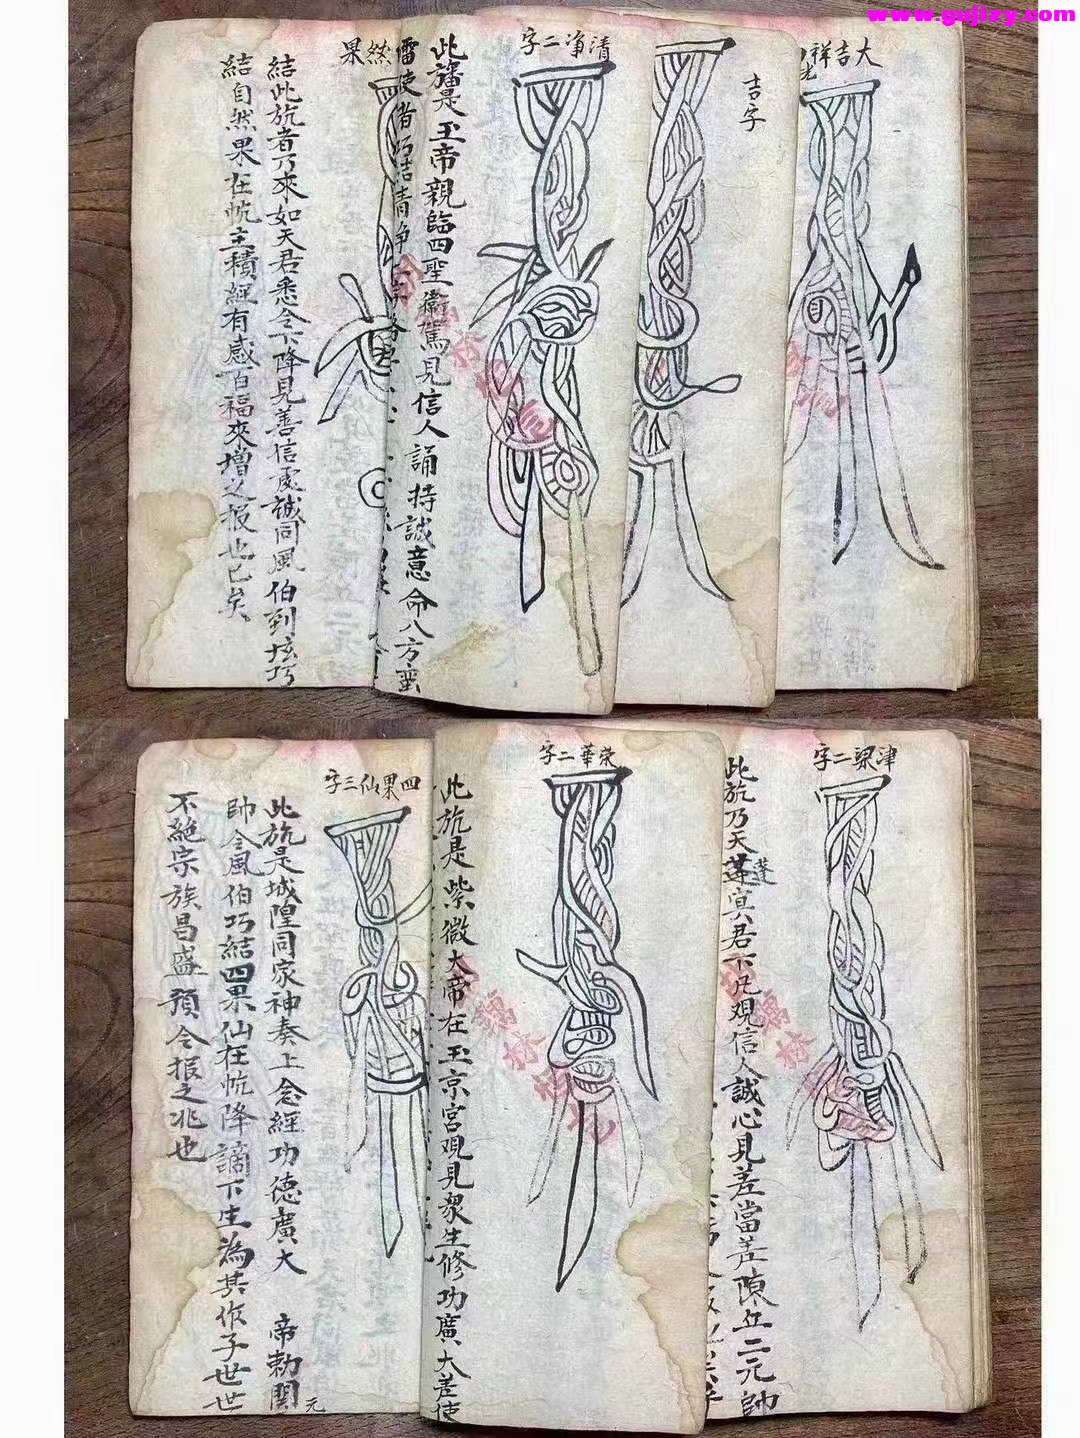 www.gujizy.com
大吉祥
吉字
清淨二字
此旛是玉帝親臨四聖衛駕見信人誦持誠意命八方蛮
雷使者巧結清淨二
然果
結此旂者乃來如天君悉令下降見善信處誠同風伯到坛巧
結自然果在旂主積經有感百福來增之报也已矣
津梁二字
此旂乃天蓬真君下凡觀信人誠心見差當差陳丘二元帥
蓬
荣華二字
此旂是紫微大帝在玉京宮观見眾生修功廣大差使
四果仙三字
此旂是城隍同家神奏上念經功德廣大 帝勅関
元
帥令風伯巧結四果仙在旂降謫下生為其作子世世
不絕宗族昌盛預令报之兆也